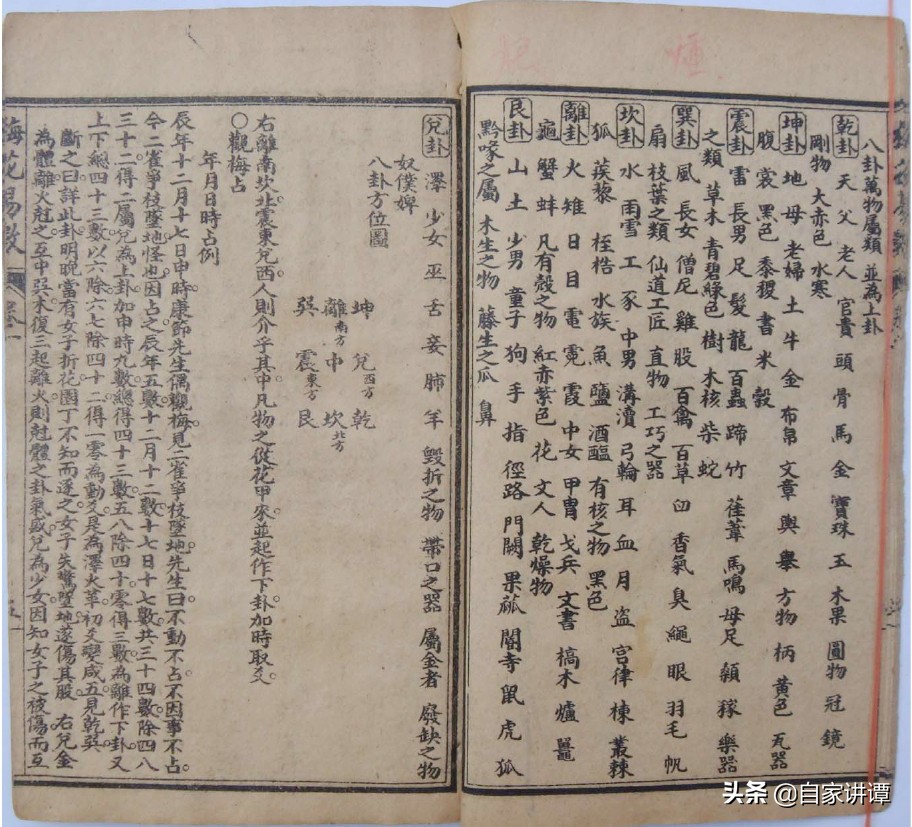 八卦萬物屬類 並為上卦
乾卦 天 父 老人 官貴 頭 骨 馬 金 寶珠 玉 木果 圓物 冠 鏡
剛物 大赤色 水寒
坤卦 地 母 老婦 土 牛 金 布帛 文章 輿 轝 方物 柄 黃色 瓦器
腹 裳 黑色 黍稷 書 米 穀
震卦 雷 長男 足 髮 龍 百蟲 蹄 竹 萑葦 馬鳴 母足 顙 稼 樂器
之類 草木 青碧綠色 樹 木核 柴 蛇
巽卦 風 長女 僧尼 雞 股 百禽 百草 臼 香氣 臭 繩 眼 羽毛 帆
扇 枝葉之類 仙道工匠 直物 工巧之器
坎卦 水 雨雪 工 豕 中男 溝瀆 弓輪 耳 血 月 盜 宮律 棟 叢棘
狐 蒺藜 桎梏 水族 魚 鹽 酒醢 有核之物 黑色
離卦 火 雉 日 目 電 霓 霞 中女 甲冑 戈兵 文書 槁木 爐 鼉
龜 蟹 蚌 凡有殼之物 紅赤紫色 花 文人 乾燥物
艮卦 山 土 少男 童子 狗 手 指 徑路 門闕 果蓏 閽寺 鼠 虎 狐
黔喙之屬 木生之物 藤生之瓜 鼻
兌卦 澤 少女 巫 舌 妾 肺 羊 毀折之物 帶口之器 屬金者 廢缺之物
奴僕婢
八卦方位圖
坤 兌西方 乾
離南方 中 坎北方
巽 震東方 艮
右離南坎北震東兌西人則介乎其中凡物之從花甲來並起作下卦加時取爻
年月日時占例
〇觀梅占
辰年十二月十七日申時康節先生偶觀梅見二雀爭枝墜地先生曰不動不占不因事不占
今二雀爭枝墜地怪也因占之辰年五數十二月十二數十七日十七數共三十四數除四八
三十二得二屬兌為上卦加申時九數總得四十三數五八除四十零得三數為離作下卦又
上下總四十三數以六除六七除四十二得一零為動爻是為澤火革初爻變咸互見乾巽
斷之曰詳此卦明晚當有女子折花園丁不知而逐之女子失驚墜地遂傷其股 右兌金
為體離火尅之互中巽木復三起離火則尅體之卦氣盛兌為少女因知女子之被傷而互
梅花易數
卷一
头条 @自家讲谭